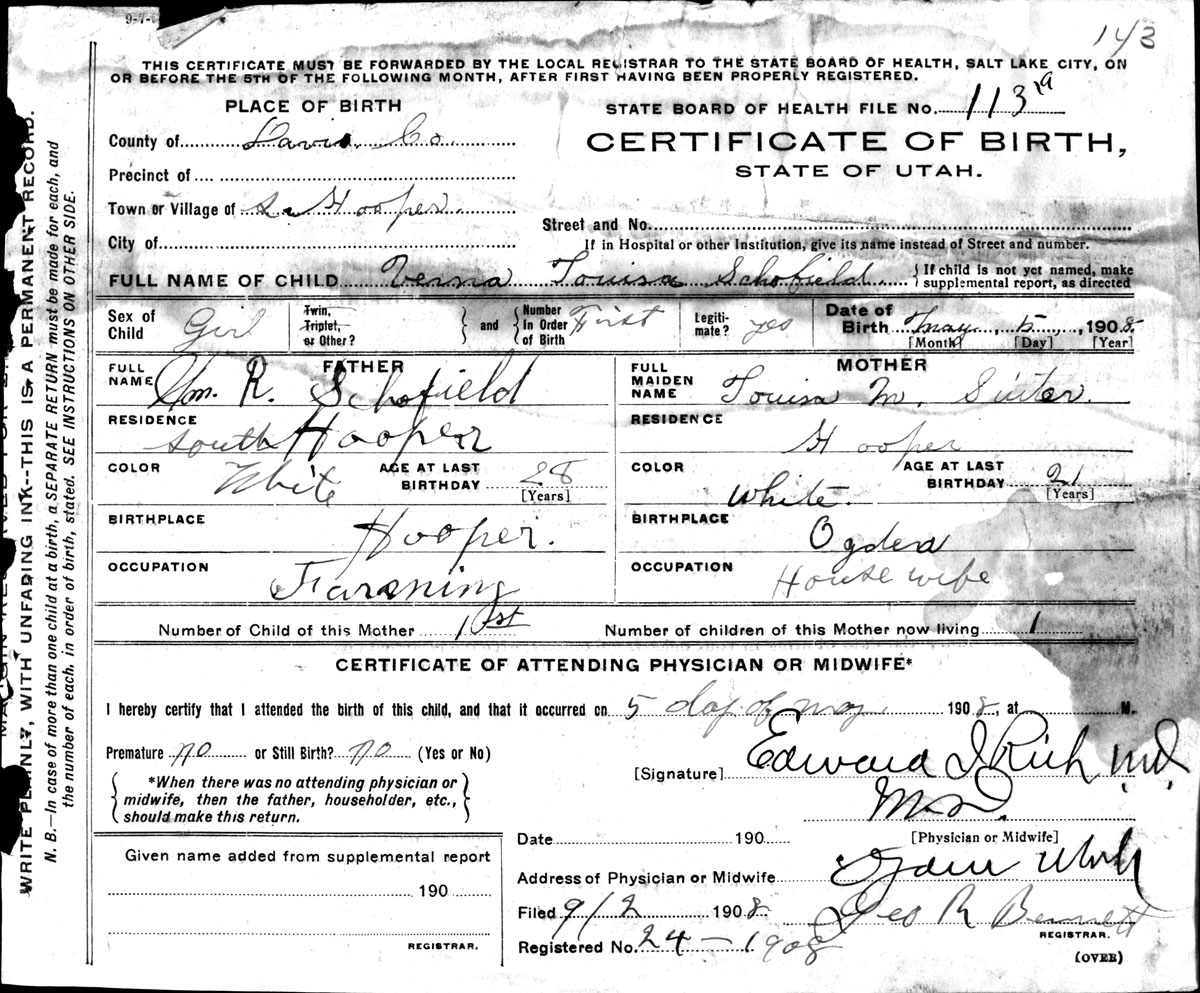 9-7-
143
THIS CERTIFICATE MUST BE FORWARDED BY THE LOCAL REGISTRAR TO THE STATE BOARD OF HEALTH, SALT LAKE CITY, ON
OR BEFORE THE 5TH OF THE FOLLOWING MONTH, AFTER FIRST HAVING BEEN PROPERLY REGISTERED.
PLACE OF BIRTH
STATE BOARD OF HEALTH FILE No. 113
County of Davis Co
CERTIFICATE OF BIRTH,
STATE OF UTAH.
Precinct of
Town or Village of So Hooper.
Street and No.
City of
If in Hospital or other Institution, give its name instead of Street and number.
FULL NAME OF CHILD Verna Louisa Schofield { If child is not yet named, make
supplemental report, as directed
Sex of Child Girl
Twin, Triplet, or Other? } and { Number in Order of Birth First
Legiti-mate? yes
Date of Birth May 5, 1908
[Month] [Day] [Year]
FATHER
FULL NAME Wm. R. Schofield
RESIDENCE South Hooper
COLOR White AGE AT LAST BIRTHDAY 28 [Years]
BIRTHPLACE Hooper.
OCCUPATION Farming
MOTHER
FULL MAIDEN NAME Louisa M. Suiter.
RESIDENCE Hooper
COLOR White. AGE AT LAST BIRTHDAY 21 [Years]
BIRTHPLACE Ogden
OCCUPATION House wife
Number of Child of this Mother 1st Number of children of this Mother now living 1
CERTIFICATE OF ATTENDING PHYSICIAN OR MIDWIFE*
I hereby certify that I attended the birth of this child, and that it occurred on 5 day of May 1908, at M.
Premature no or Still Birth? no (Yes or No)
[Signature] Edward I Rich M.D.
{ *When there was no attending physician or
midwife, then the father, householder, etc.,
should make this return. }
M.D.
[Physician or Midwife]
Date 190
Address of Physician or Midwife Ogden Utah
Filed 9/2 1908 Geo R Bennett
REGISTRAR.
Registered No. 24-1908
(OVER)
Given name added from supplemental report
190
REGISTRAR.
WRITE PLAINLY, WITH UNFADING INK--THIS IS A PERMANENT RECORD.
N. B.—In case of more than one child at a birth, a SEPARATE RETURN must be made for each, and
the number of each, in order of birth, stated. SEE INSTRUCTIONS ON OTHER SIDE.